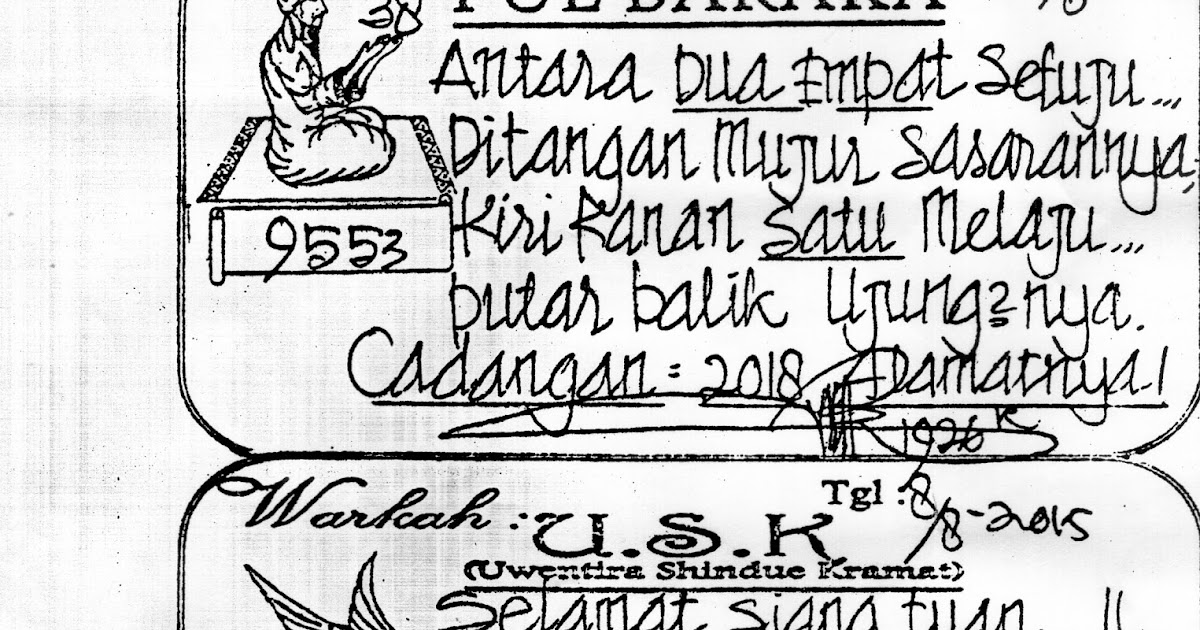 Antara Dua Empat Setuju...
Ditangan Mujur Sasarannya,
Kiri Kanan Satu Melaju...
putar balik Ujung2nya.
9553
Cadangan = 2018
1926
Warkah : U.S.K
Tgl : 8/8-2015
(Uwentira Shindue Kramat)
Selamat siang tuan